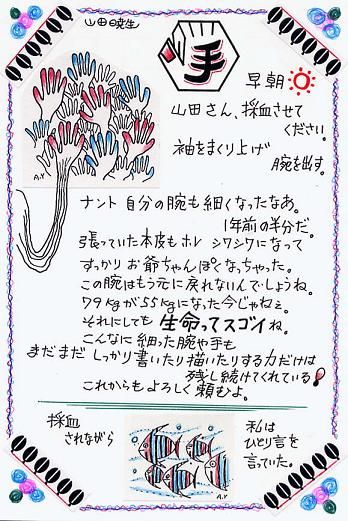 山田暁生
手
早朝
山田さん、採血させて
ください。
袖をまくり上げ
腕を出す。
A.Y
ナント 自分の腕も細くなったなあ。
1年前の半分だ。
張っていた本皮もホレ シワシワになって
すっかりお爺ちゃんぽくなっちゃった。
この腕はもう元に戻れないんでしょうね。
79kgが55kgになった今じゃねぇ。
それにしても 生命ってスゴイね。
こんなに細った腕や手も
まだまだ しっかり書いたり描いたりする力だけは
残し続けてくれている!
これからもよろしく頼むよ。
採血
されながら
A.Y
私は
ひとり言を
言っていた。